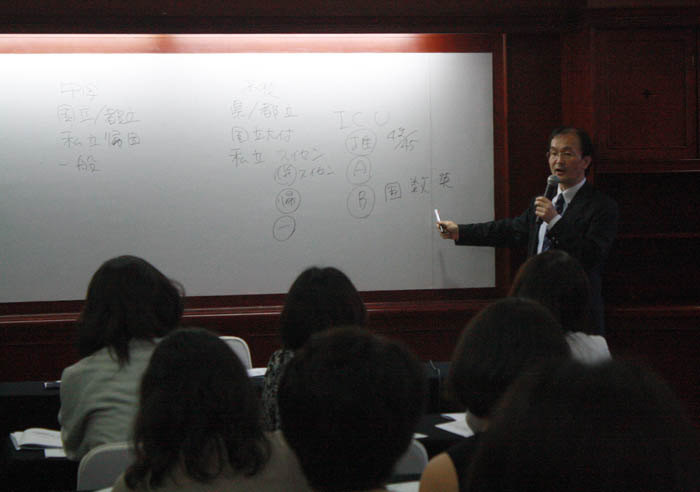 中学
国立/都立
私立帰国
一般
高校
県/都立
国立大付
私立 スイセン
スイセン
帰
一
ICU
推
A
B 国 数 英